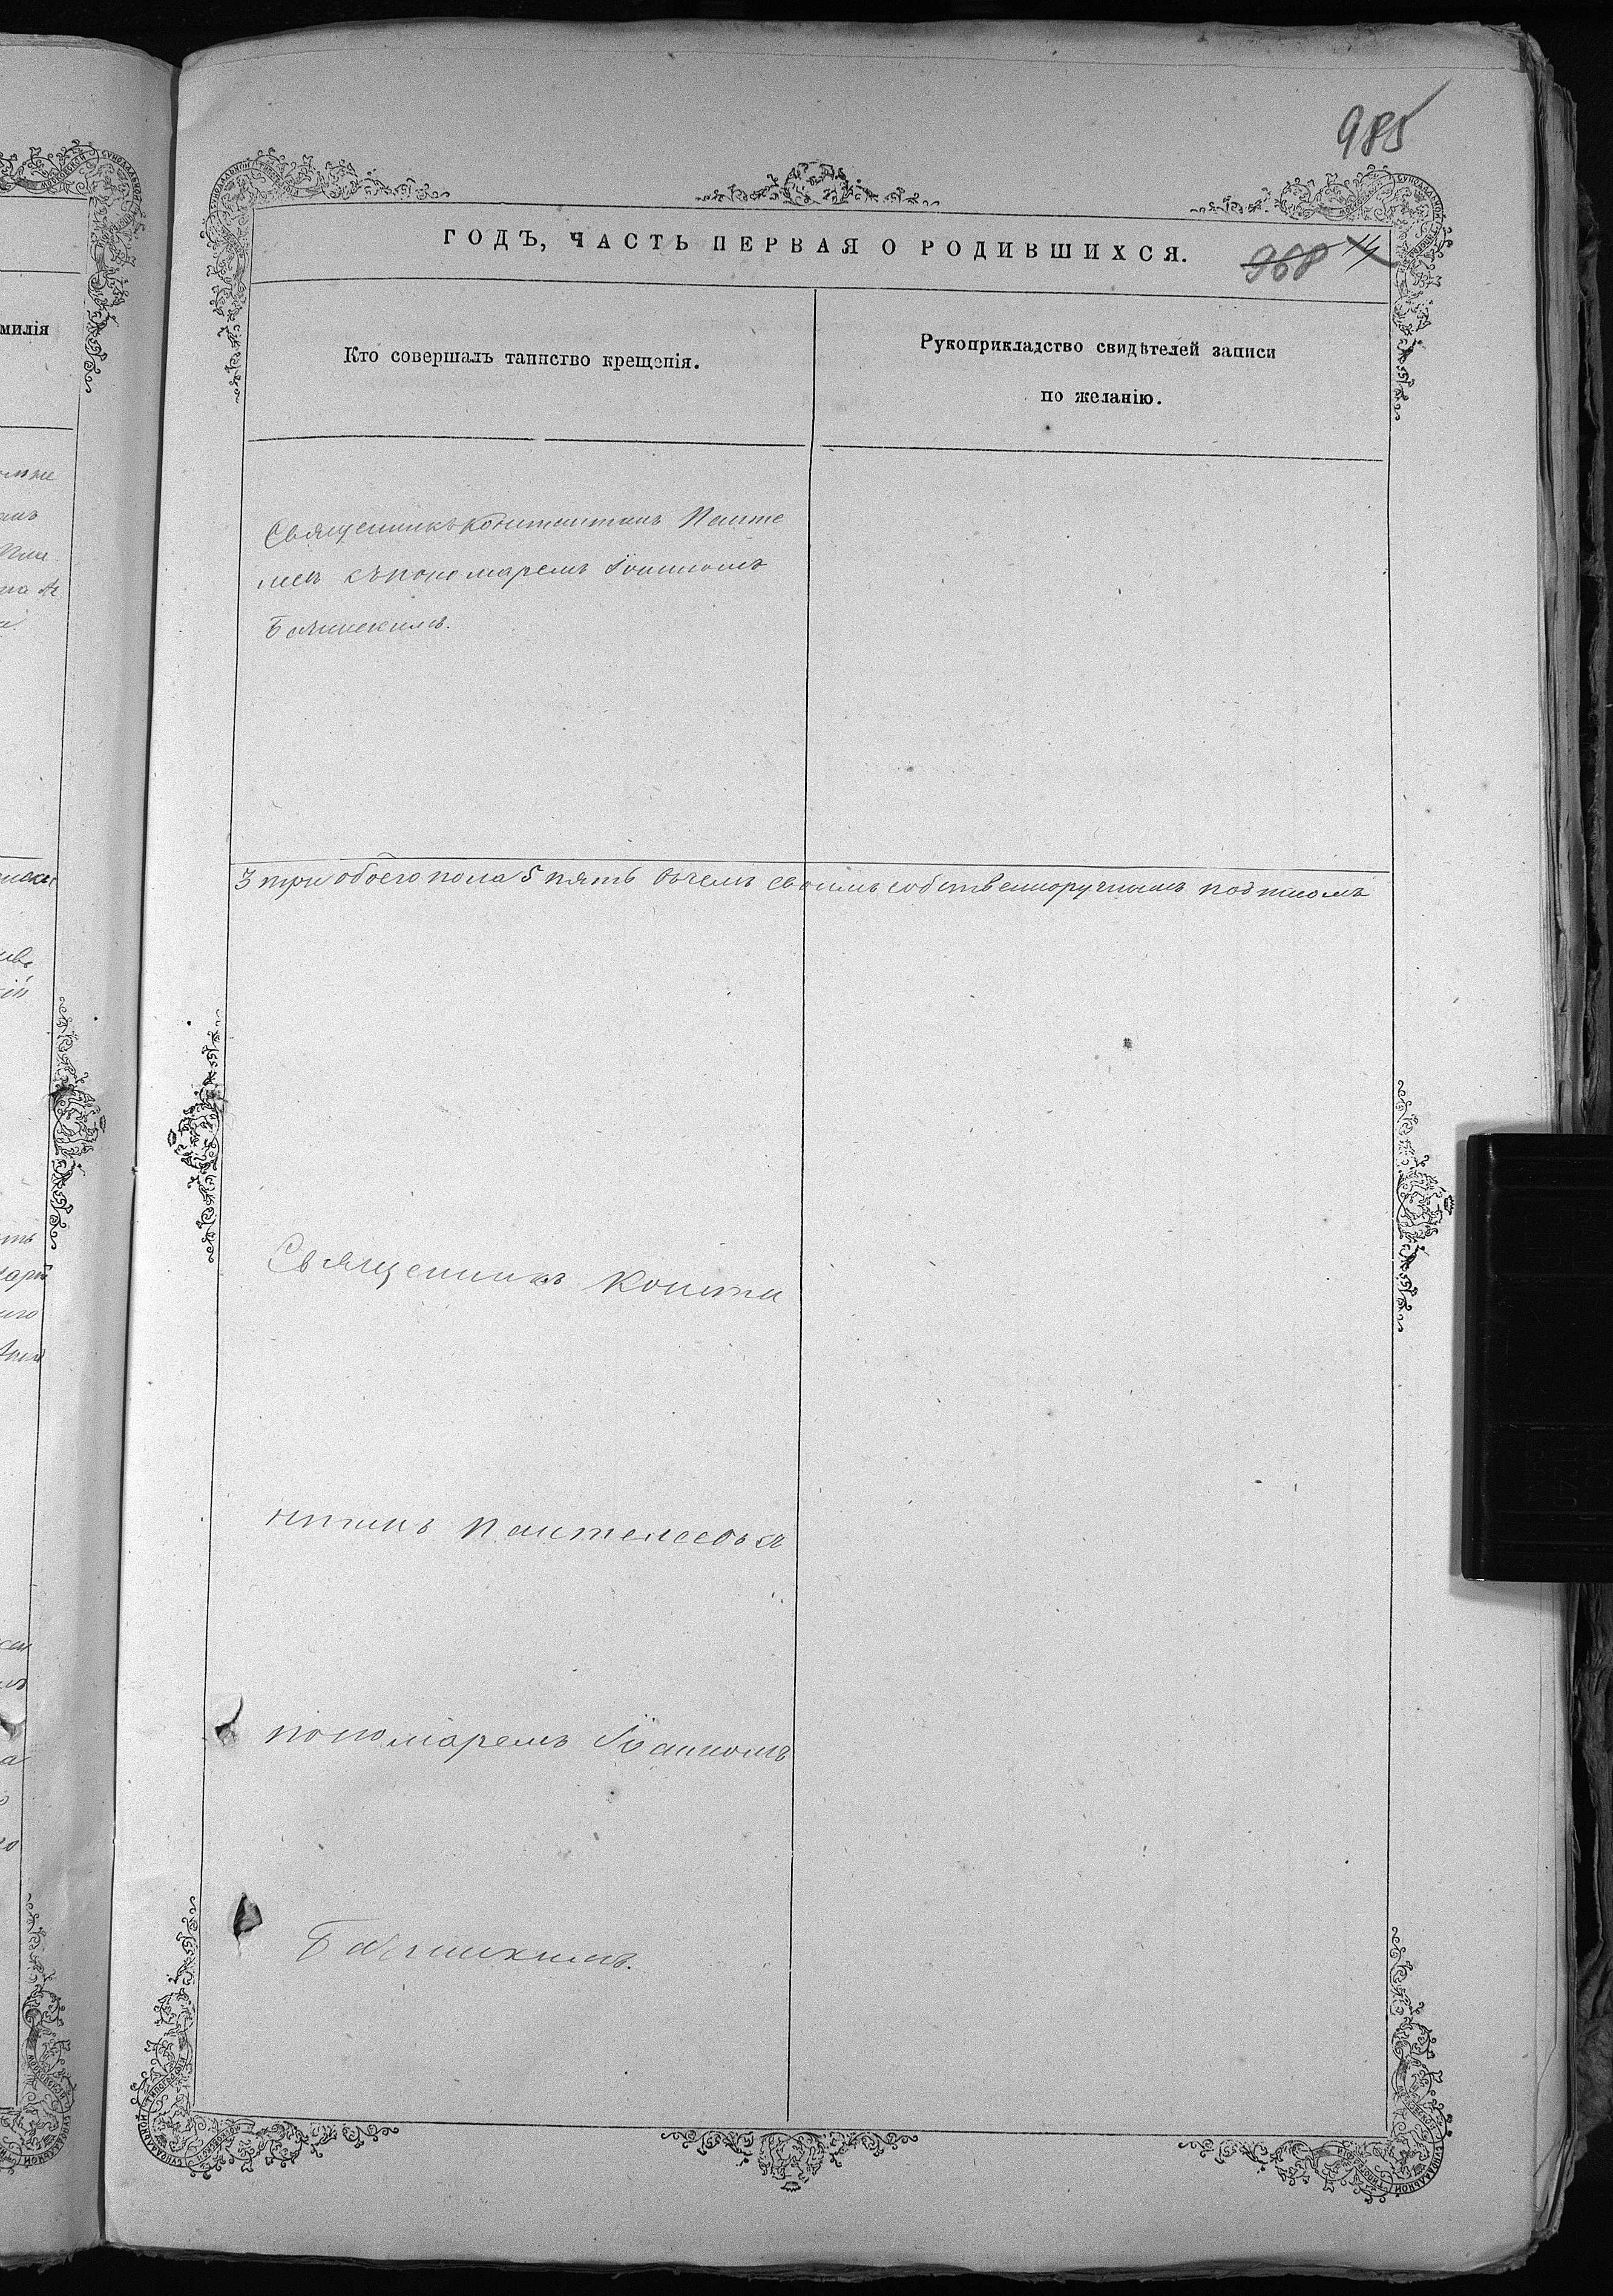 985
ГОДЪ, ЧАСТЬ ПЕРВАЯ О РОДИВШИХСЯ.
968 14
милія
Кто совершалъ таинство крещенія.
Рукоприкладство свидѣтелей записи
по желанію.
Священникъ Константинъ Панте
леевъ съ пономаремъ Іоанномъ
3 три обоего пола 5 пять въ чемъ своимъ собственноручнымъ подписомъ
Священникъ Конста
нтинъ Пантелеевъ
пономаремъ Іоанномъ